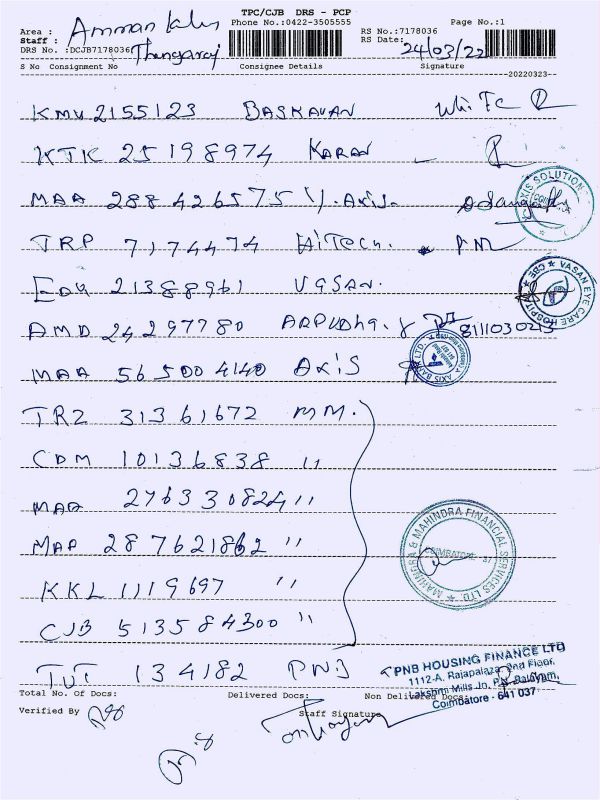 TPC/CJB DRS - PCP
Area : Amman Phone No.:0422-3505555 Page No.:1
Staff : Thangaraj RS No.:7178036
DRS No. :DCJB7178036 RS Date: 24/03/22
S No Consignment No Consignee Details Signature
--20220323--
KMU 2155123 BASKAVAN White
KTK 25198974 KARAN
MAA 288426575 Axis
TRP 7174474 HiTech.
21388961 VASAN.
AMD 24297780 ARPUDha 8111030213
MAA 565004140 AXiS
TRZ 31361672 MM.
CDM 10136838 ''
MAA 276330824 ''
MAA 287621862 ''
KKL 1119697 ''
CJB 513584300 ''
TUT 134182 PNJ
AXIS SOLUTION
VASAN EYE CARE HOSPITAL ★ CBE ★
AXIS BANK LTD.
MAHINDRA & MAHINDRA FINANCIAL SERVICES LTD ★
COIMBATORE
PNB HOUSING FINANCE LTD
1112-A, Rajapalaza, 2nd Floor,
Lakshmi Mills Jn, P.N. Palayam,
Coimbatore - 641 037
Total No. Of Docs: Delivered Docs: Non Delivered Docs:
Verified By Staff Signature